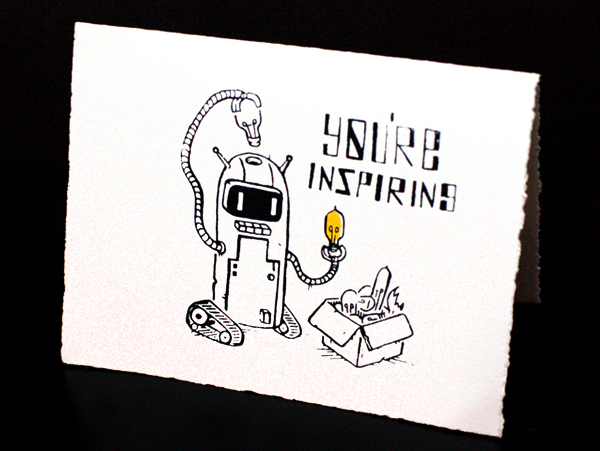 YOU'RE
INSPIRING